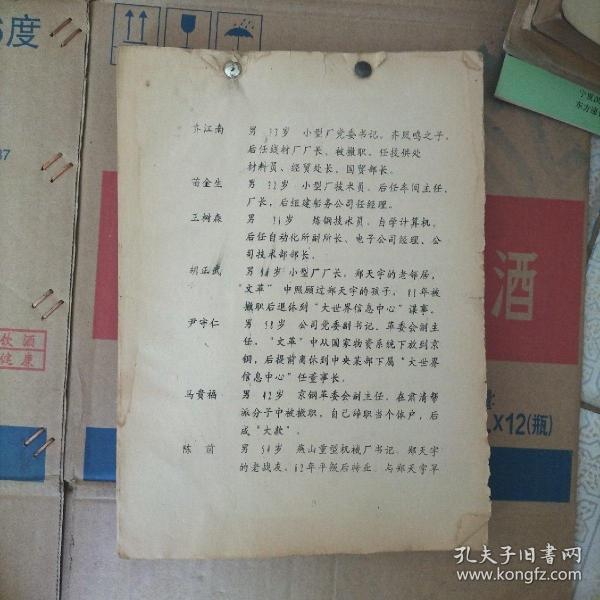 度
齐江南 男 33岁 小型厂党委书记，齐凤鸣之子，
后任线材厂厂长、被撤职、任技供处
材料员、经贸处长、国贸部长。
苗金生 男 32岁 小型厂技术员，后任车间主任，
厂长，后组建船务公司任经理。
王树森 男 岁 炼钢技术员，自学计算机，
后任自动化所副所长、电子公司经理、公
司技术部部长。
胡正武 男 岁 小型厂厂长，郑天宇的老邻居，
“文革”中照顾过郑天宇的孩子， 年被
撤职后退休到“大世界信息中心”谋事。
尹守仁 男 58岁 公司党委副书记、革委会副主
任，“文革”中从国家物资系统下放到京
钢，后提前离休到中央某部下属“大世界
信息中心”任董事长。
马贵福 男 42岁 京钢革委会副主任，在肃清帮
派分子中被撤职，自己辞职当个体户，后
成“大款”。
陈前 男 岁 燕山重型机械厂书记，郑天宇
的老战友， 年平级后转业，与郑天宇早
酒
饮酒
健康
X12(瓶)
孔夫子旧书网
www.kongfz.com